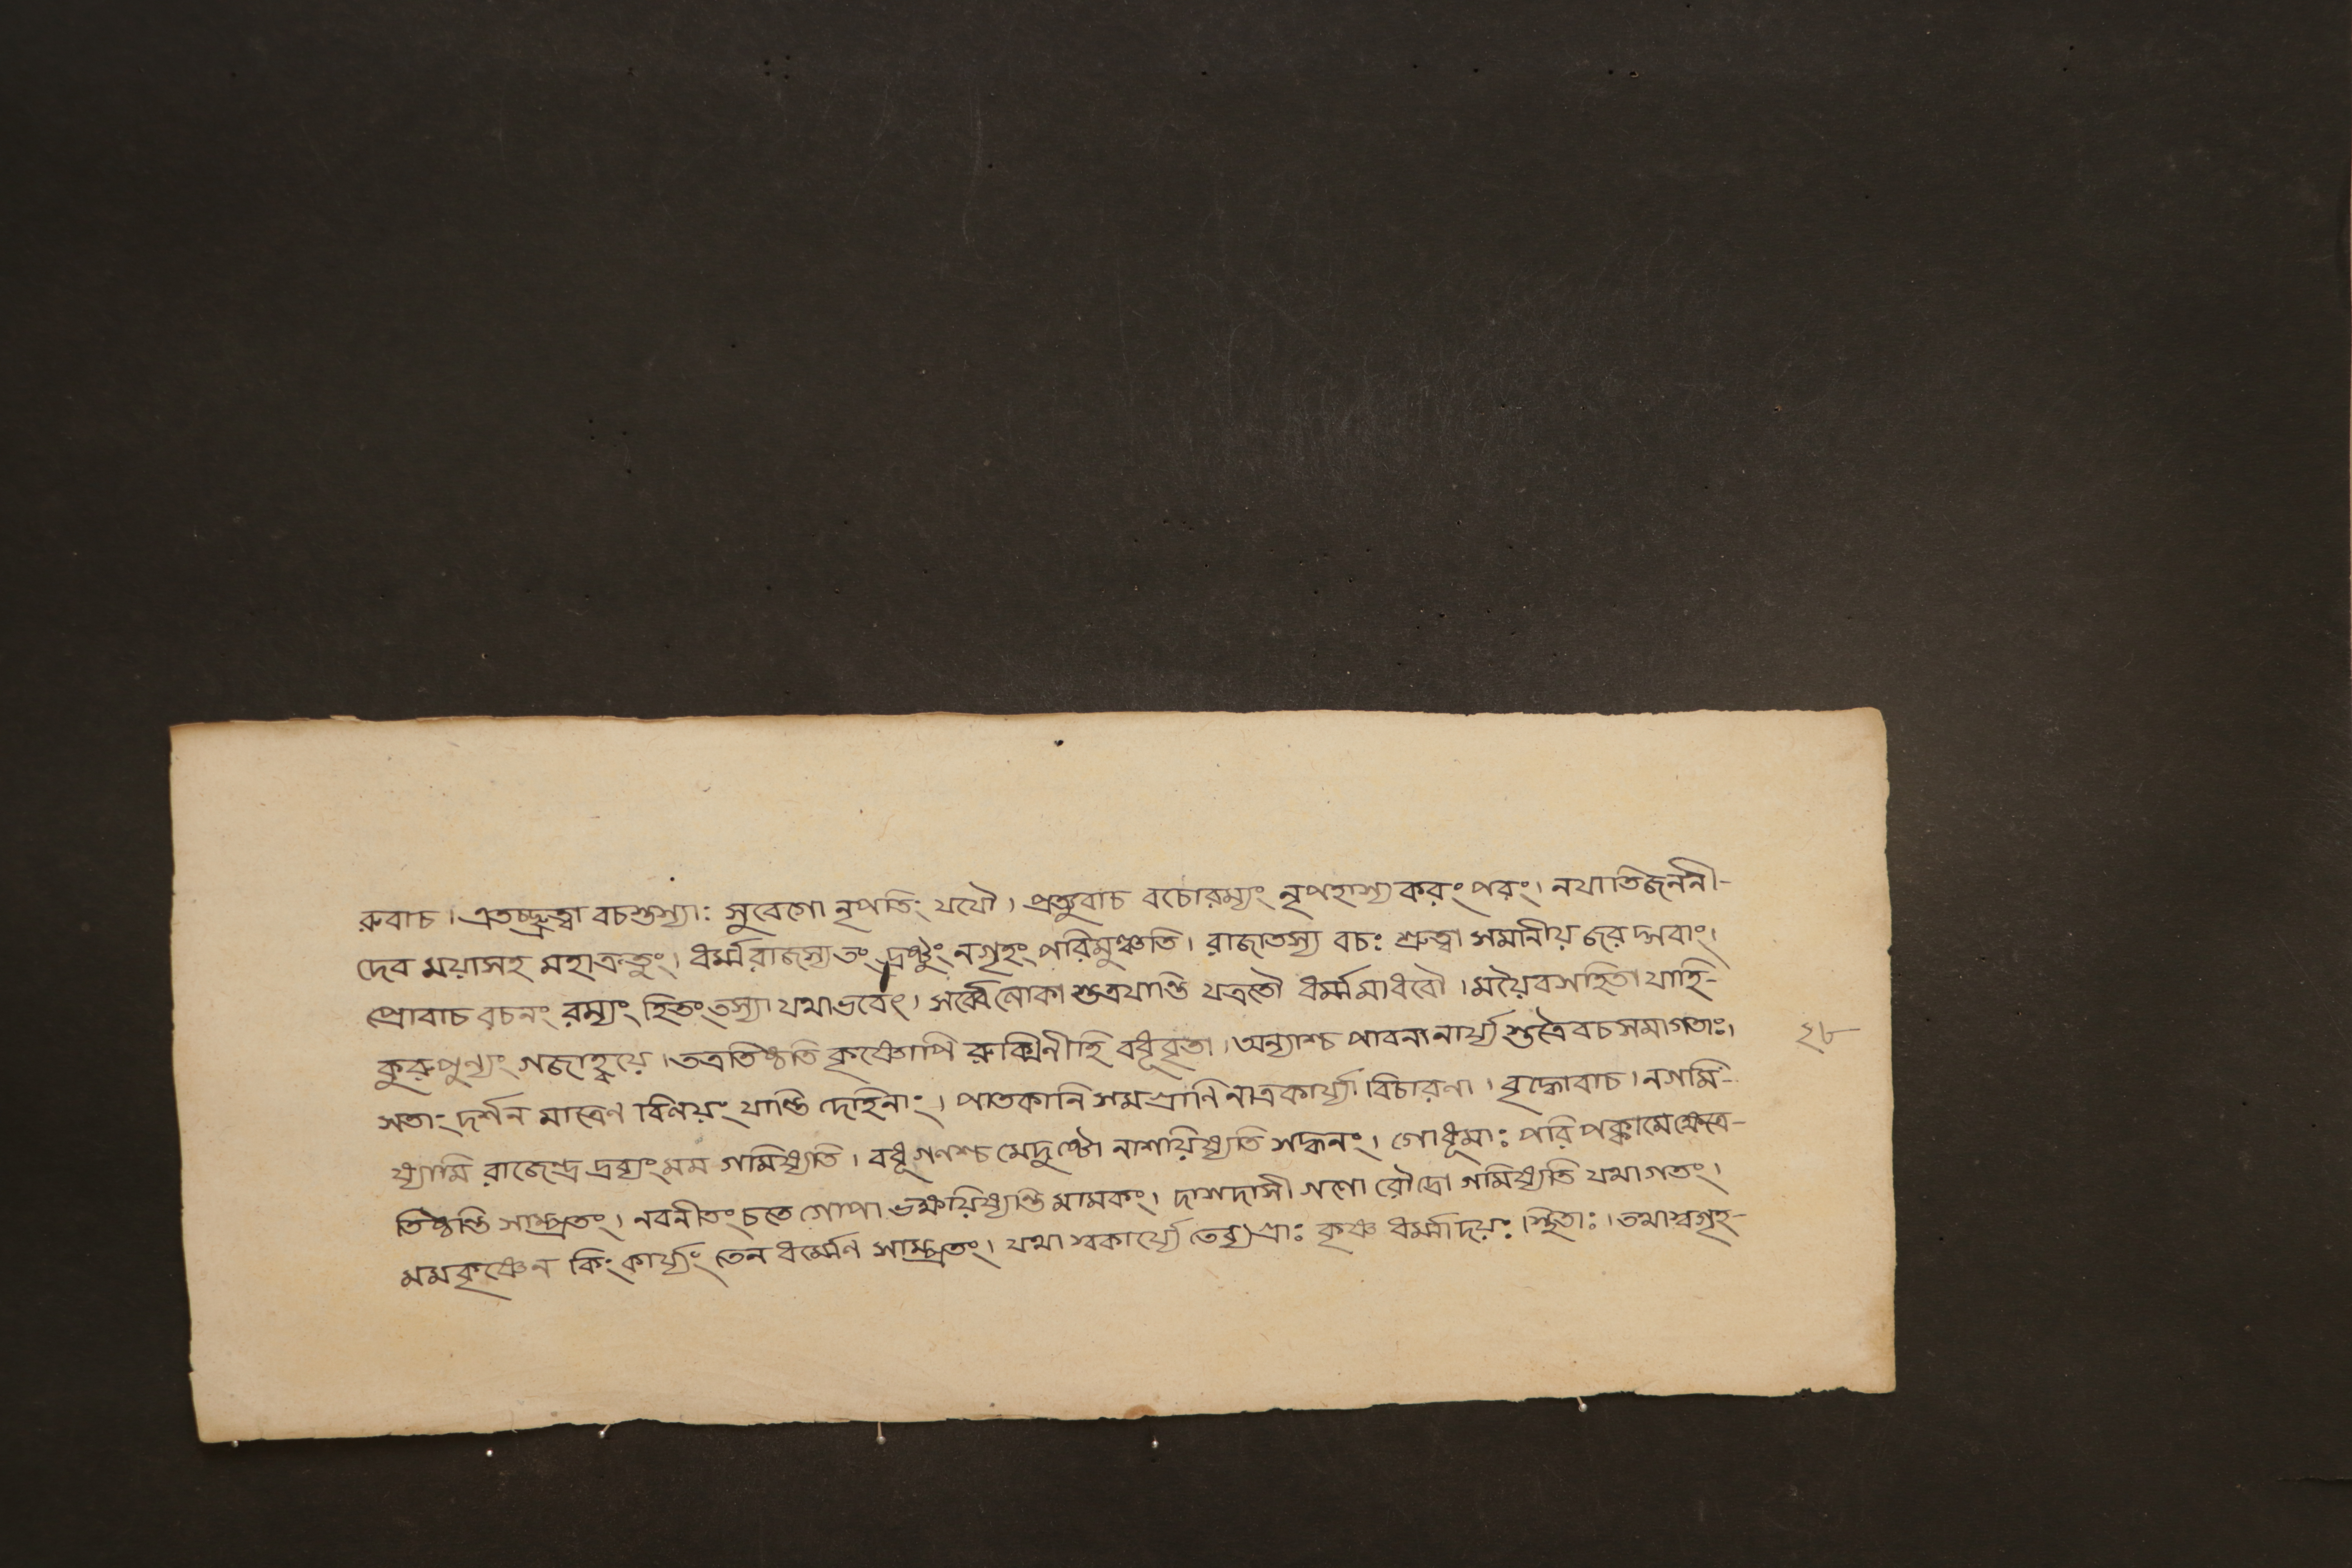 রুবাচ। এতচ্ছ্রুত্বা বচস্তস্যাঃ সুবেগো নৃপতিং যযৌ। প্রত্যুবাচ বচোরম্যং নৃপহাস্য করং পরং। নযাতিজননী-
দেব ময়াসহ মহাক্রতুং। ধর্ম্মরাজস্যতং দ্রষ্টুং নগৃহং পরিমুঞ্চতি। রাজাতস্য বচঃ শ্রুত্বা সমানীয় জরদ্গবাং।
প্রোবাচ বচনং রম্যং হিতং তস্যা যথাভবেৎ। সর্ব্বেলোকাস্তত্রযান্তি যত্রতৌ ধর্ম্মমাধবৌ। ময়ৈবসহিতা যাহি-
কুরুপুন্যং গজাহ্বয়ে। তত্রতিষ্ঠতি কৃষ্ণোপি রুক্মিনীহি বধূবৃতা। অন্যাশ্চ পাবনানার্য্যস্তত্রৈবচসমাগতাঃ।
সতাং দর্শন মাত্রেণ বিলয়ং যান্তি দেহিনাং। পাতকানি সমগ্রাণি নাত্রকার্য্যা বিচারণা। বৃদ্ধোবাচ। নগমি-
ষ্যামি রাজেন্দ্র দ্রব্যংমম গমিষ্যতি। বধূগণশ্চ মেদুষ্টো নাশয়িষ্যতি সদ্ধনং। গোধূমাঃ পরিপক্কামেক্ষেত্রে-
তিষ্ঠন্তি সাম্প্রতং। নবনীতংচতে গোপা ভক্ষয়িষ্যন্তি মামকং। দাসদাসী গণো রৌদ্রো গমিষ্যতি যথাগতং।
মমকৃষ্ণেন কিংকার্য্যং তেন ধর্ম্মেণ সাম্প্রতং। যথা স্বকার্য্যে তেব্যগ্রাঃ কৃষ্ণ ধর্ম্মাদয়ঃ স্থিতাঃ। তথাস্বগৃহ-
২৮